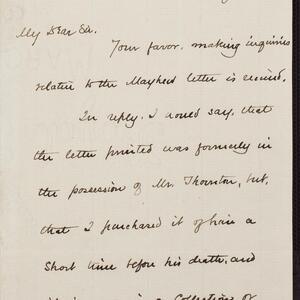 My Dear Sir.
Your favor, making inquiries
relative to the Mayhew letter is received.
In reply, I would say, that
the letter printed was formerly in
the possession of Mr. Thornton, but,
that I purchased it of him a
short time before his death, and
in a Collection of